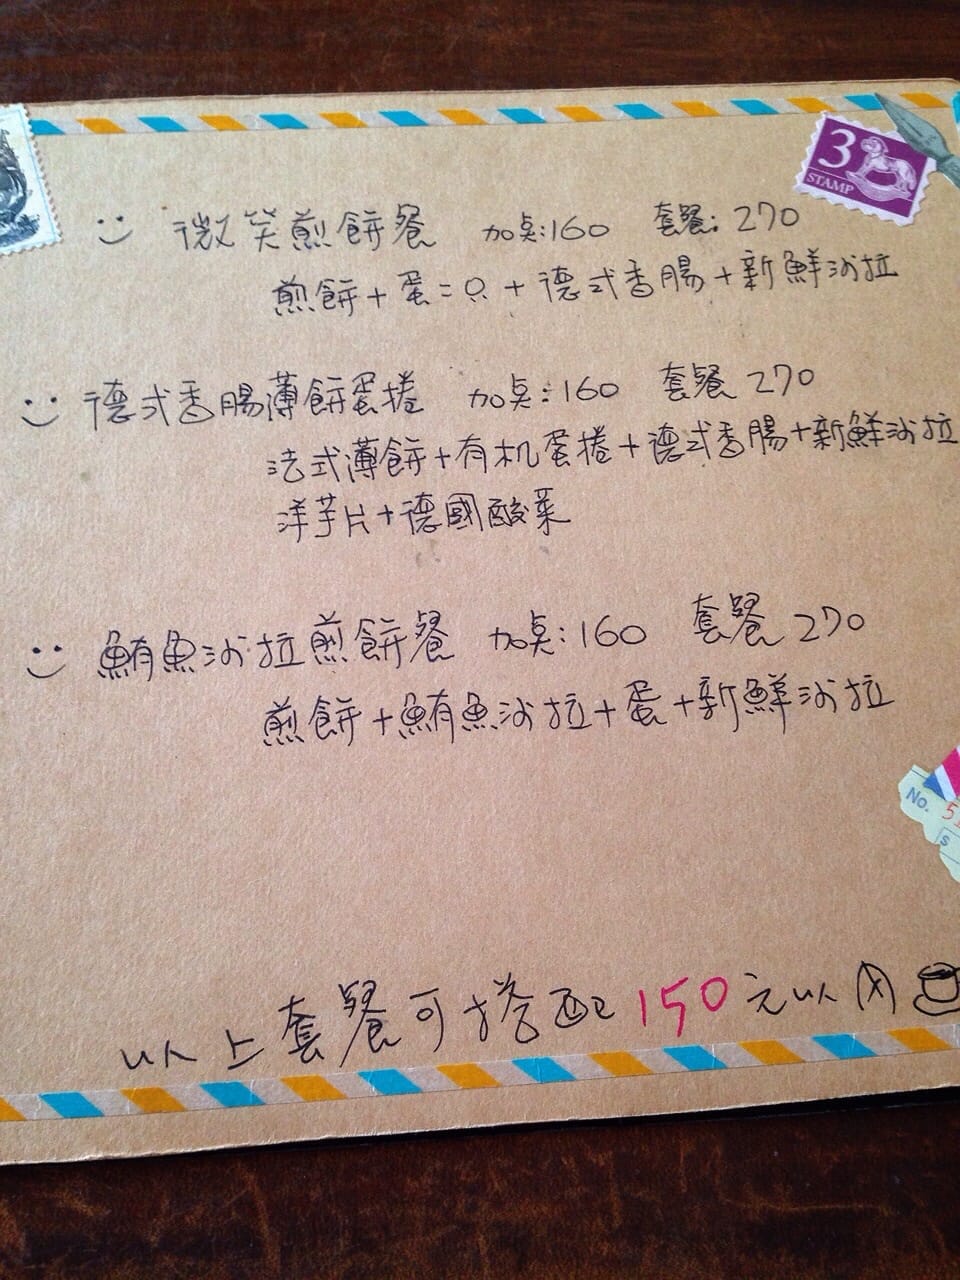 3
STAMP
微笑煎餅餐 加桌:160 套餐:270
煎餅+蛋二只+德式香腸+新鮮沙拉
德式香腸薄餅蛋捲 加桌:160 套餐 270
法式薄餅+有机蛋捲+德式香腸+新鮮沙拉
洋芋片+德國酸菜
鮪魚沙拉煎餅餐 加桌:160 套餐 270
煎餅+鮪魚沙拉+蛋+新鮮沙拉
No. 51
S
以上套餐可搭配150元以內